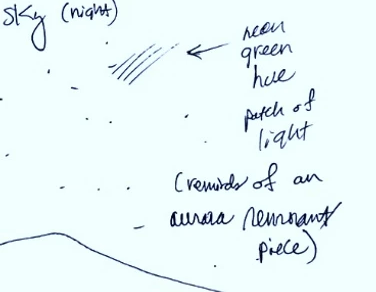 Sky (night)
neon
green
hue
patch of
light
(reminds of an
aurora remnant/
piece)